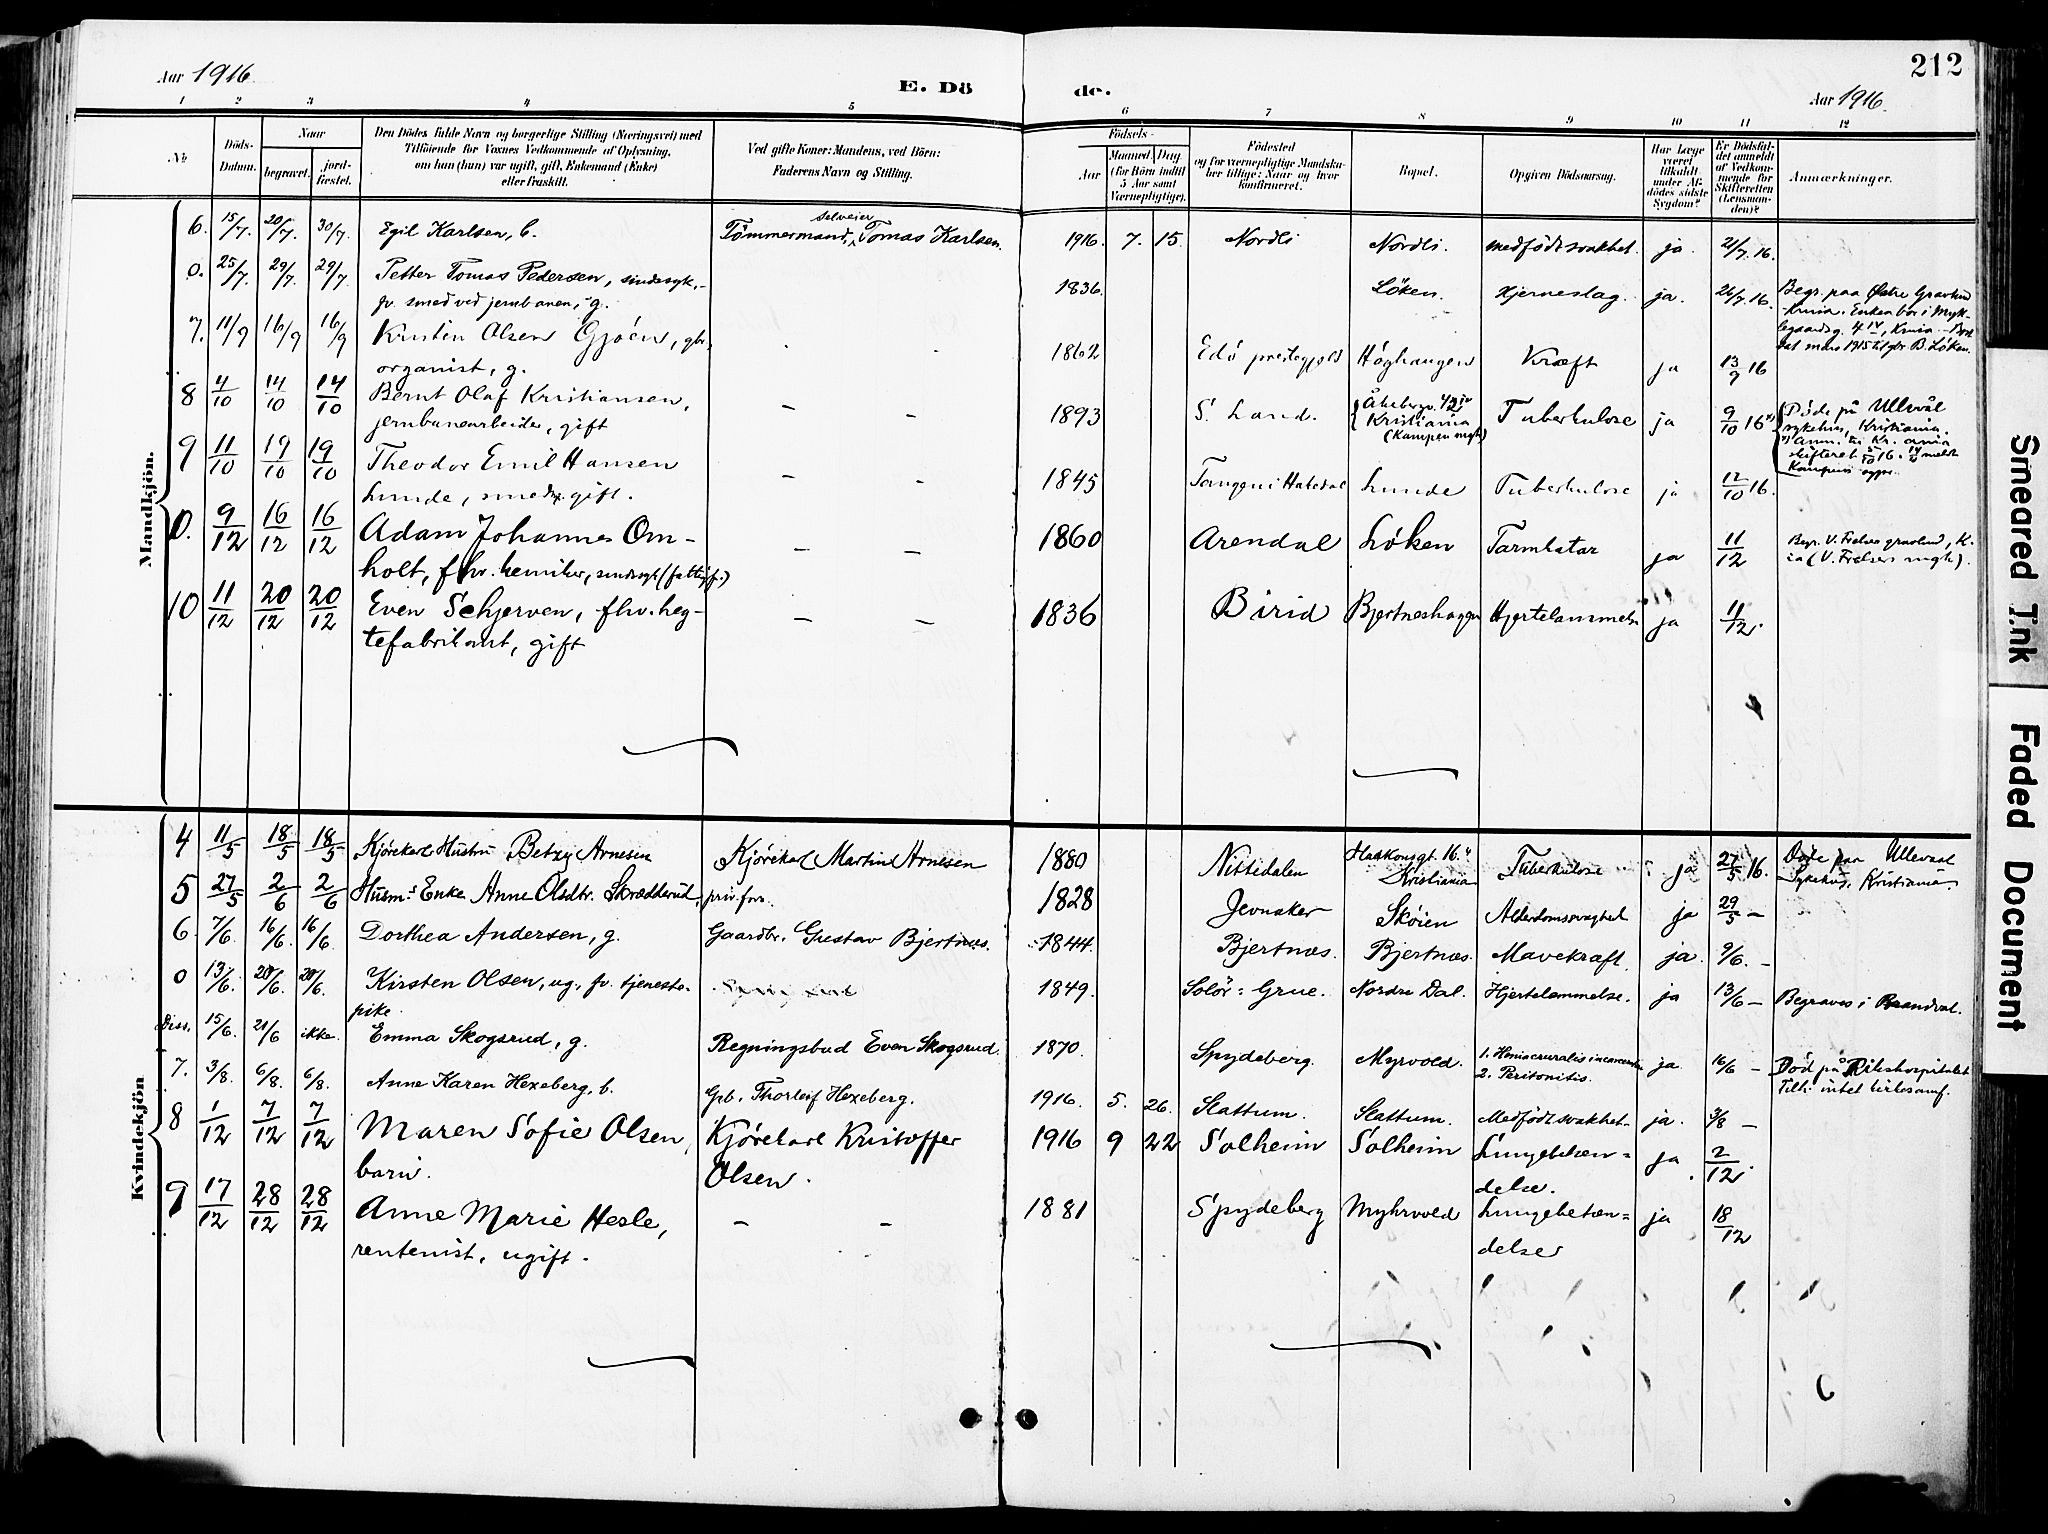 212
Aar 1916.
E. Dö
de.
Aar 1916.
1 2 3 4 5 6 7 8 9 10 11 12
No.
Döds-
Datum.
Naar
begravet.
jord-
fæstet.
Den Dödes fulde Navn og borgerlige Stilling (Næringsvei) med
Tilföiende for Voxnes Vedkommende af Oplysning,
om han (hun) var ugift, gift, Enkemand (Enke)
eller fraskilt.
Ved gifte Koner: Mandens, ved Börn:
Faderens Navn og Stilling.
Födsels-
Aar
Maaned. Dag
(for Börn indtil
5 Aar samt
Værnepligtige).
Födested
og for værnepligtige Mandska-
ber tillige: Naar og hvor
konfirmeret.
Bopæl.
Opgiven Dödsaarsag.
Har Læge
været
tilkaldt
under Af-
dödes sidste
Sygdom?
Er Dödsfal-
det anmeldt
af Vedkom-
mende for
Skifteretten
(Lensman-
den)?
Anmærkninger.
Mandkjön.
6. 15/7. 20/7. 30/7. Egil Karlsen, b. Tömmermand, selveier Tomas Karlsen. 1916. 7. 15. Nordli Nordli. medfödt svakhet. ja. 21/7. 16.
0. 25/7. 29/7. 29/7. Petter Tomas Pedersen, sindssyk,
fv. smed ved jernbanen, g. 1836. Løken. Hjerneslag. ja. 26/7. 16. Begr. paa Østre Gravlund
Kr.nia. Enken bor i Myk-
legaardsg. 4 IV, Kr.nia
sat mars 1915 til gbr. B. Løken.
7. 11/9 16/9 16/9 Kristen Olsen Gjöen, gbr.,
organist, g. 1862 Edö prestegjeld Höghaugen Kræft ja 13/9 16
8 4/10 14/10 14/10 Bernt Olaf Kristiansen,
jernbanearbeider, gift – – 1893 S. Land. Åkebergv. 42 IV
Kristiania
(Kampen mgh) Tuberkulose ja 9/10 16 Döde på Ullevål
sykehus, Kristiania.
9 11/10 19/10 19/10 Theodor Emil Hansen
Lunde, smed, gift. – – 1845 Tangen i Hakedal Lunde Tuberkulose ja 12/10 16.
0. 9/12 16/12 16/12 Adam Johannes Om-
holt, fhv. kemiker, sindssyk (fattigf.) – – 1860 Arendal Løken Tarmkatar ja 11/12 Begr. V. Frelsers gravlund, K.
ia (V. Frelsers mgh).
10 11/12 20/12 20/12 Even Schjerven, fhv. heg-
tefabrikant, gift – – 1836 Birid Bjertneshagen Hjertelammelse ja 11/12.
Kvindekjön
4 11/5 18/5 18/5 Kjörekarls Hustru Betzy Arnesen Kjörekarl Martin Arnesen 1880 Nittedalen Haakonsgt. 16. II
Kristiania Tuberkulose ja 27/5 16. Döde paa Ullevaal
Sykehus, Kristiania.
5 27/5 2/6 2/6 Husm.s Enke Anne Olsdtr. Skrædderud, priv. fors. 1828 Jevnaker Skøien Alderdomssvaghed ja 29/5 –
6. 7/6. 16/6. 16/6. Dorthea Andersen, g. Gaardbr. Gustav Bjertnæs. 1844. Bjertnæs. Bjertnæs. Mavekræft. ja. 9/6. –
0 13/6. 20/6. 20/6. Kirsten Olsen, ug. fv. tjeneste-
pike. 1849. Solör: Grue. Nordre Dal. Hjertelammelse. ja 13/6 – Begraves i Brandval.
Diss. 15/6. 21/6 ikke. Emma Skogsrud, g. Regningsbud Even Skogsrud. 1870. Spydeberg. Myrvold. 1. Hernia cruralis incarcerata
2. Peritonitis. ja. 16/6 – Död på Rikshospitalet
Tilh. intet kirkesamf.
7. 3/8. 6/8. 6/8. Anne Karen Hexeberg, b. Gb. Thorleif Hexeberg. 1916. 5. 26. Slattum. Slattum. Medfödt svakhet. ja. 3/8 –
8 1/12 7/12 7/12 Maren Sofie Olsen,
barn. Kjörekarl Kristoffer
Olsen. 1916 9 22 Solheim Solheim Lungebetæn-
delse. ja 2/12.
9 17/12 28/12 28/12 Anne Marie Hesle,
rentenist, ugift. – – 1881 Spydeberg Myhrvold Lungebetæn-
delse ja 18/12
Smeared Ink
Faded Document